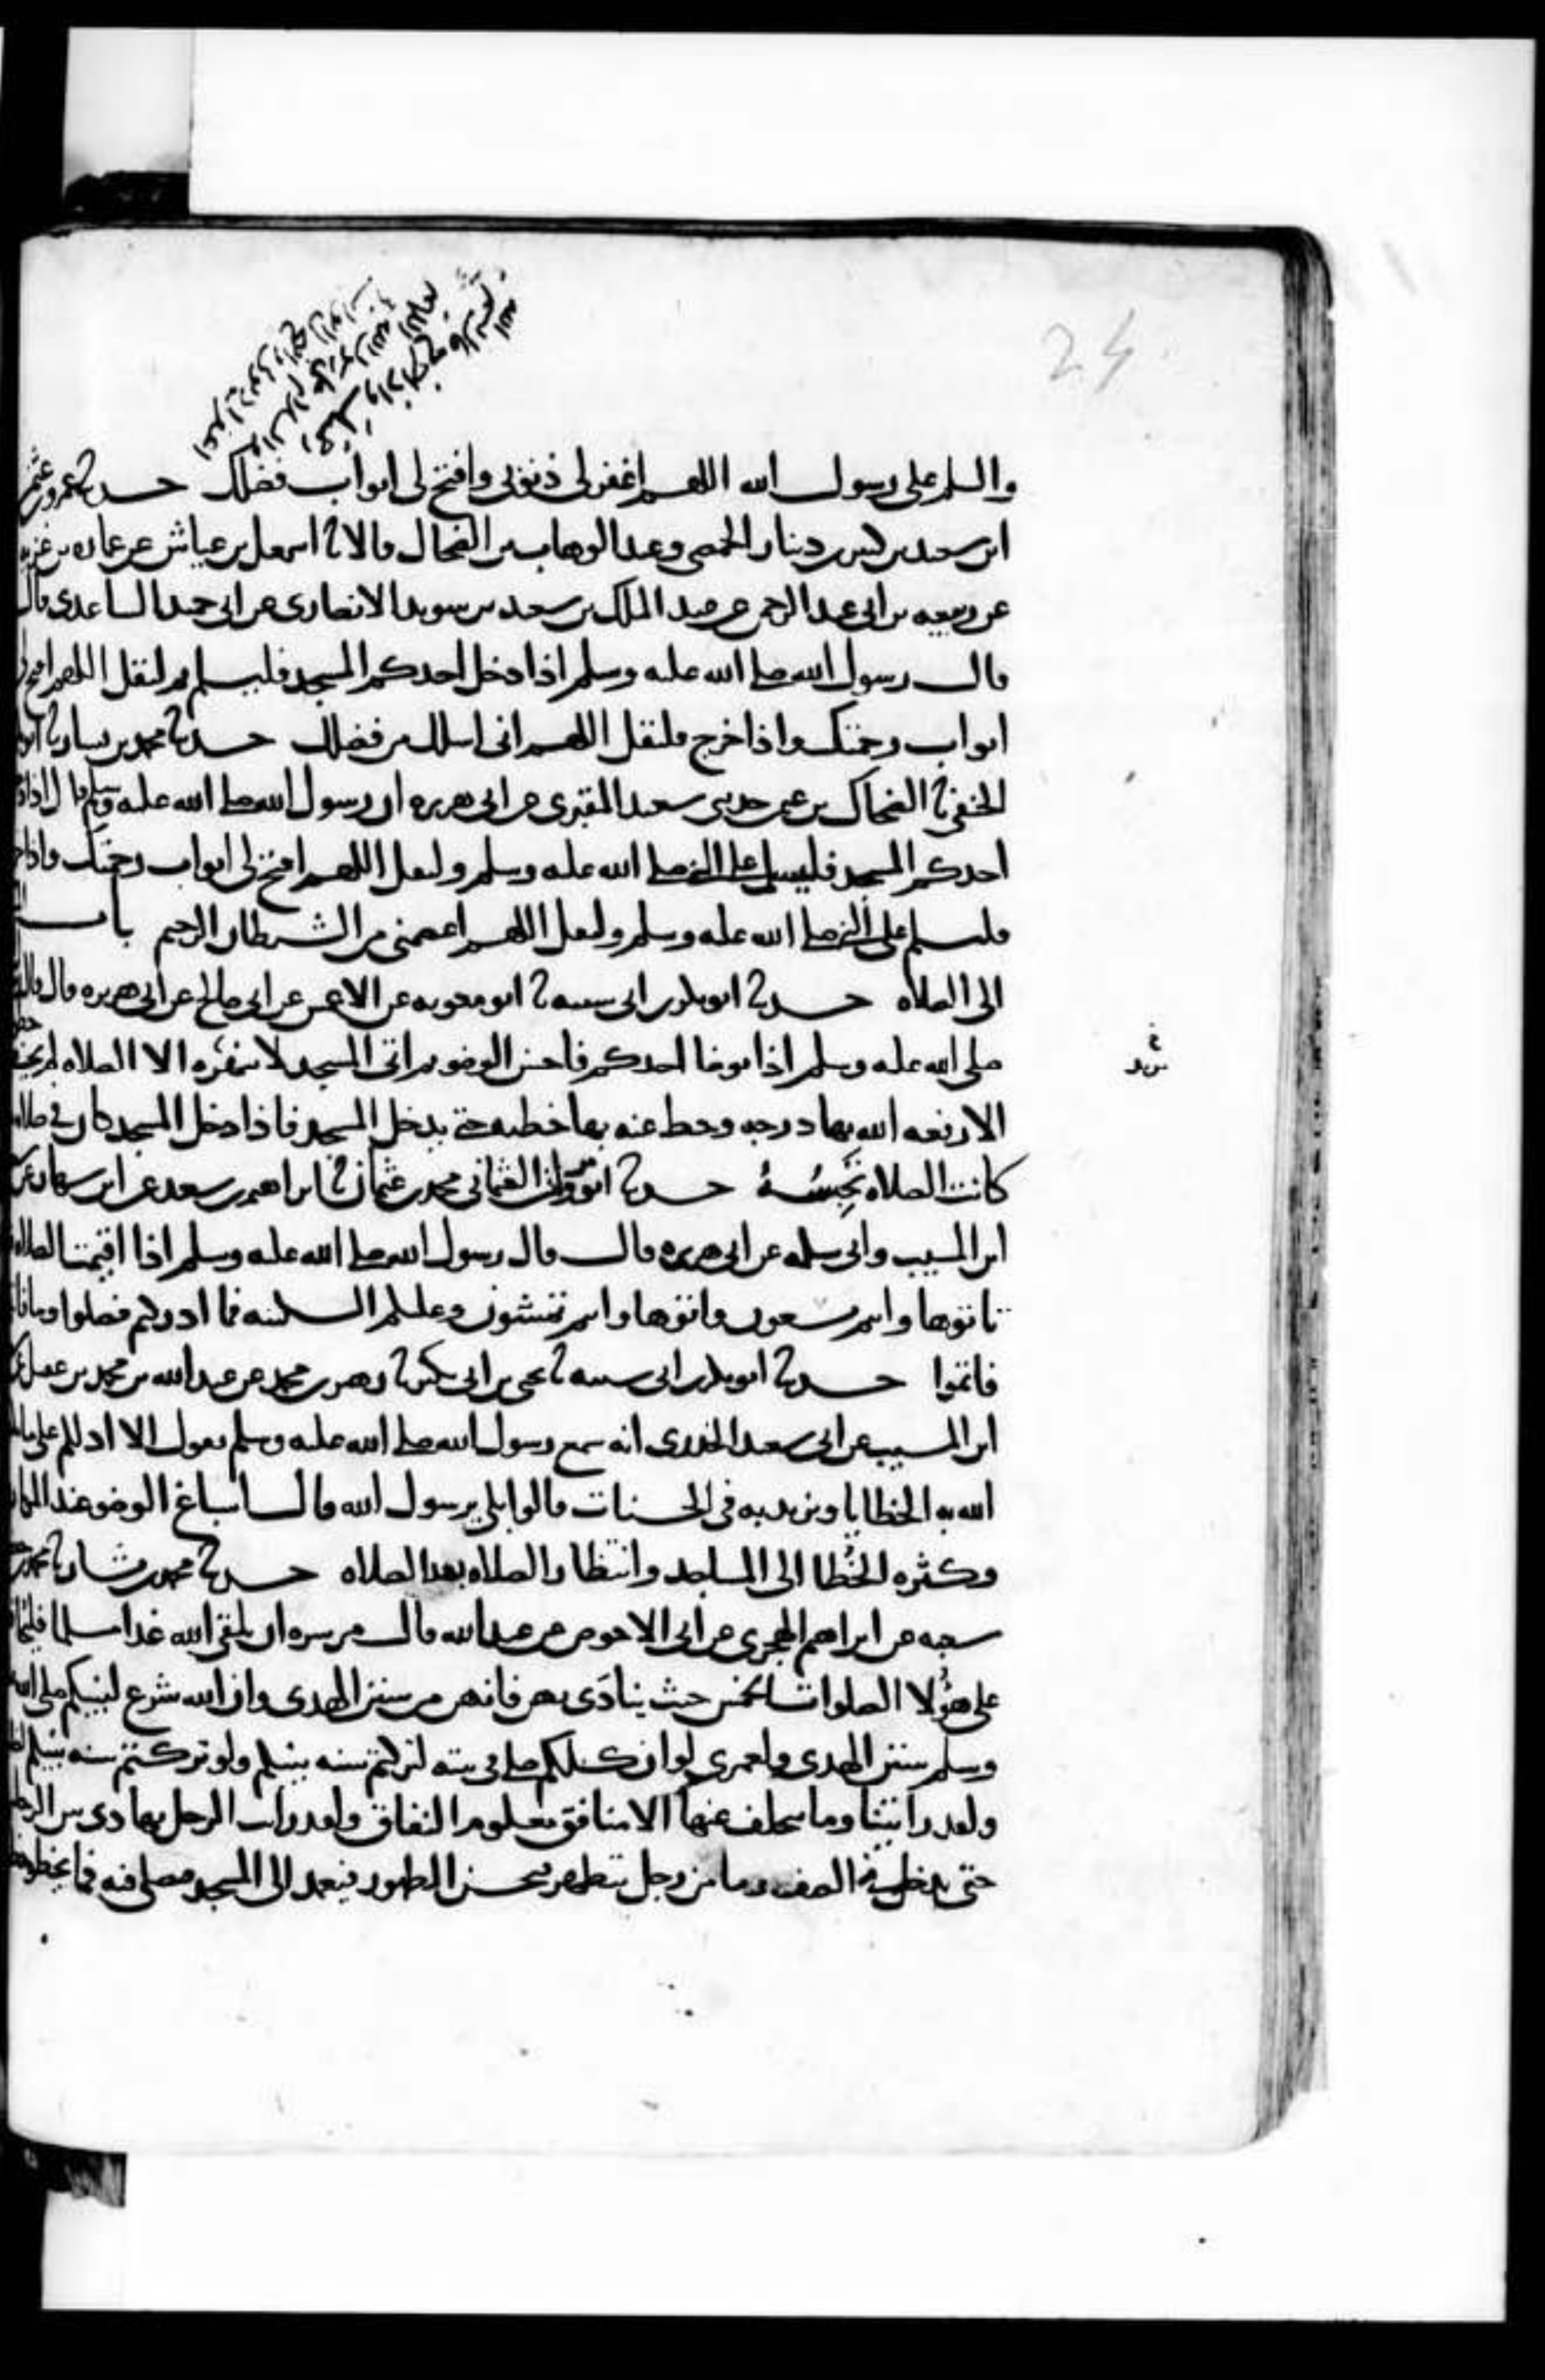 24
والسلم على رسول الله اللهم اغفر لي ذنوبي وافتح لي ابواب فضلك حدثنا عمرو بن عثمن
ابن سعيد بن كثير بن دينار الحمصي وعبد الوهاب بن الضحاك قالا نا اسمعيل بن عياش عن عماره بن غزيه
عن ربيعه بن ابي عبد الرحمن عن عبد الملك بن سعيد بن سويد الانصاري عن ابي حميد الساعدي قال
قال رسول الله صلى الله عليه وسلم اذا دخل احدكم المسجد فليسلم ثم ليقل اللهم افتح لي
ابواب رحمتك واذا خرج فليقل اللهم اني اسلك من فضلك حدثنا محمد بن بشار نا ابو بكر
الحنفي نا الضحاك بن عثمن حدثني سعيد المقبري عن ابي هريره ان رسول الله صلى الله عليه وسلم قال اذا دخل
احدكم المسجد فليسلم على النبي صلى الله عليه وسلم وليقل اللهم افتح لي ابواب رحمتك واذا خرج
فليسلم على النبي صلى الله عليه وسلم وليقل اللهم اعصمني من الشيطان الرجيم باب
الى الصلاه حدثنا ابو بكر بن ابي شيبه نا ابو معويه عن الاعمش عن ابي صالح عن ابي هريره قال قال
صلى الله عليه وسلم اذا توضا احدكم فاحسن الوضو ثم اتى المسجد لا ينهزه الا الصلاه لم يخط
الا رفعه الله بها درجه وحط عنه بها خطيه حتى يدخل المسجد فاذا دخل المسجد كان في صلاه
كانت الصلاه تحبسه حدثنا ابو مروان العثماني محمد بن عثمان نا ابراهيم بن سعد عن ابن شهاب عن
ابن المسيب وابي سلمه عن ابي هريره قال قال رسول الله صلى الله عليه وسلم اذا اقيمت الصلاه
تاتوها وانتم تسعون واتوها وانتم تمشون وعليكم السكينه فما ادركتم فصلوا وما فاتكم
فاتموا حدثنا ابو بكر بن ابي شيبه نا يحيى بن ابي بكير نا زهير بن محمد عن عبد الله بن محمد بن عقيل عن
ابن المسيب عن ابي سعيد الخدري انه سمع رسول الله صلى الله عليه وسلم يقول الا ادلكم على ما
الله به الخطايا ويزيد به في الحسنات قالوا بلى يرسول الله قال اسباغ الوضو عند المكاره
وكثره الخطا الى المساجد وانتظار الصلاه بعد الصلاه حدثنا محمد بن بشار نا محمد بن
شعبه عن ابراهيم الهجري عن ابي الاحوص عن عبد الله قال من سره ان يلقى الله غدا مسلما فليحافظ
على هؤلا الصلوات الخمس حيث ينادى بهن فانهن من سنن الهدى وان الله شرع لنبيكم صلى الله
وسلم سنن الهدى ولعمري لو ان كلكم صلى في بيته لتركتم سنه نبيكم ولو تركتم سنه نبيكم
ولقد رايتنا وما يتخلف عنها الا منافق معلوم النفاق ولقد رايت الرجل يهادى بين الرجلين
حتى يدخل في الصف وما من رجل يتطهر فيحسن الطهور فيعمد الى المسجد فيصلي فيه فما يخطو